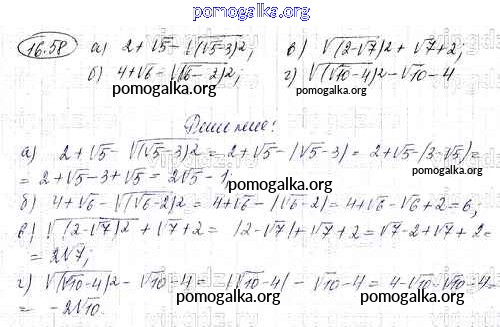 pomogalka.org
16.58 а) 2+√5-√(√5-3)²; в) √(2-√7)²+√7+2;
б) 4+√6-√(√6-2)²; г) √(√10-4)²-√10-4
pomogalka.org pomogalka.org
Решение:
а) 2+√5-√(√5-3)² = 2+√5-|√5-3| = 2+√5-(3-√5)=
= 2+√5-3+√5 = 2√5-1;
pomogalka.org pomogalka.org
б) 4+√6-√(√6-2)² = 4+√6-|√6-2| = 4+√6-√6+2=6;
в) √(2-√7)²+√7+2 = |2-√7|+√7+2 = √7-2+√7+2=
= 2√7;
г) √(√10-4)²-√10-4 = |√10-4|-√10-4 = 4-√10-√10-4=
= -2√10.
pomogalka.org pomogalka.org